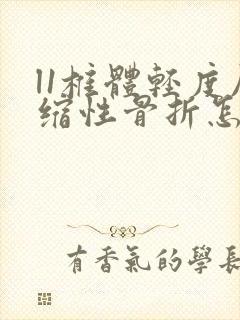 11椎體輕度
缩性骨折怎
有香氣的學長